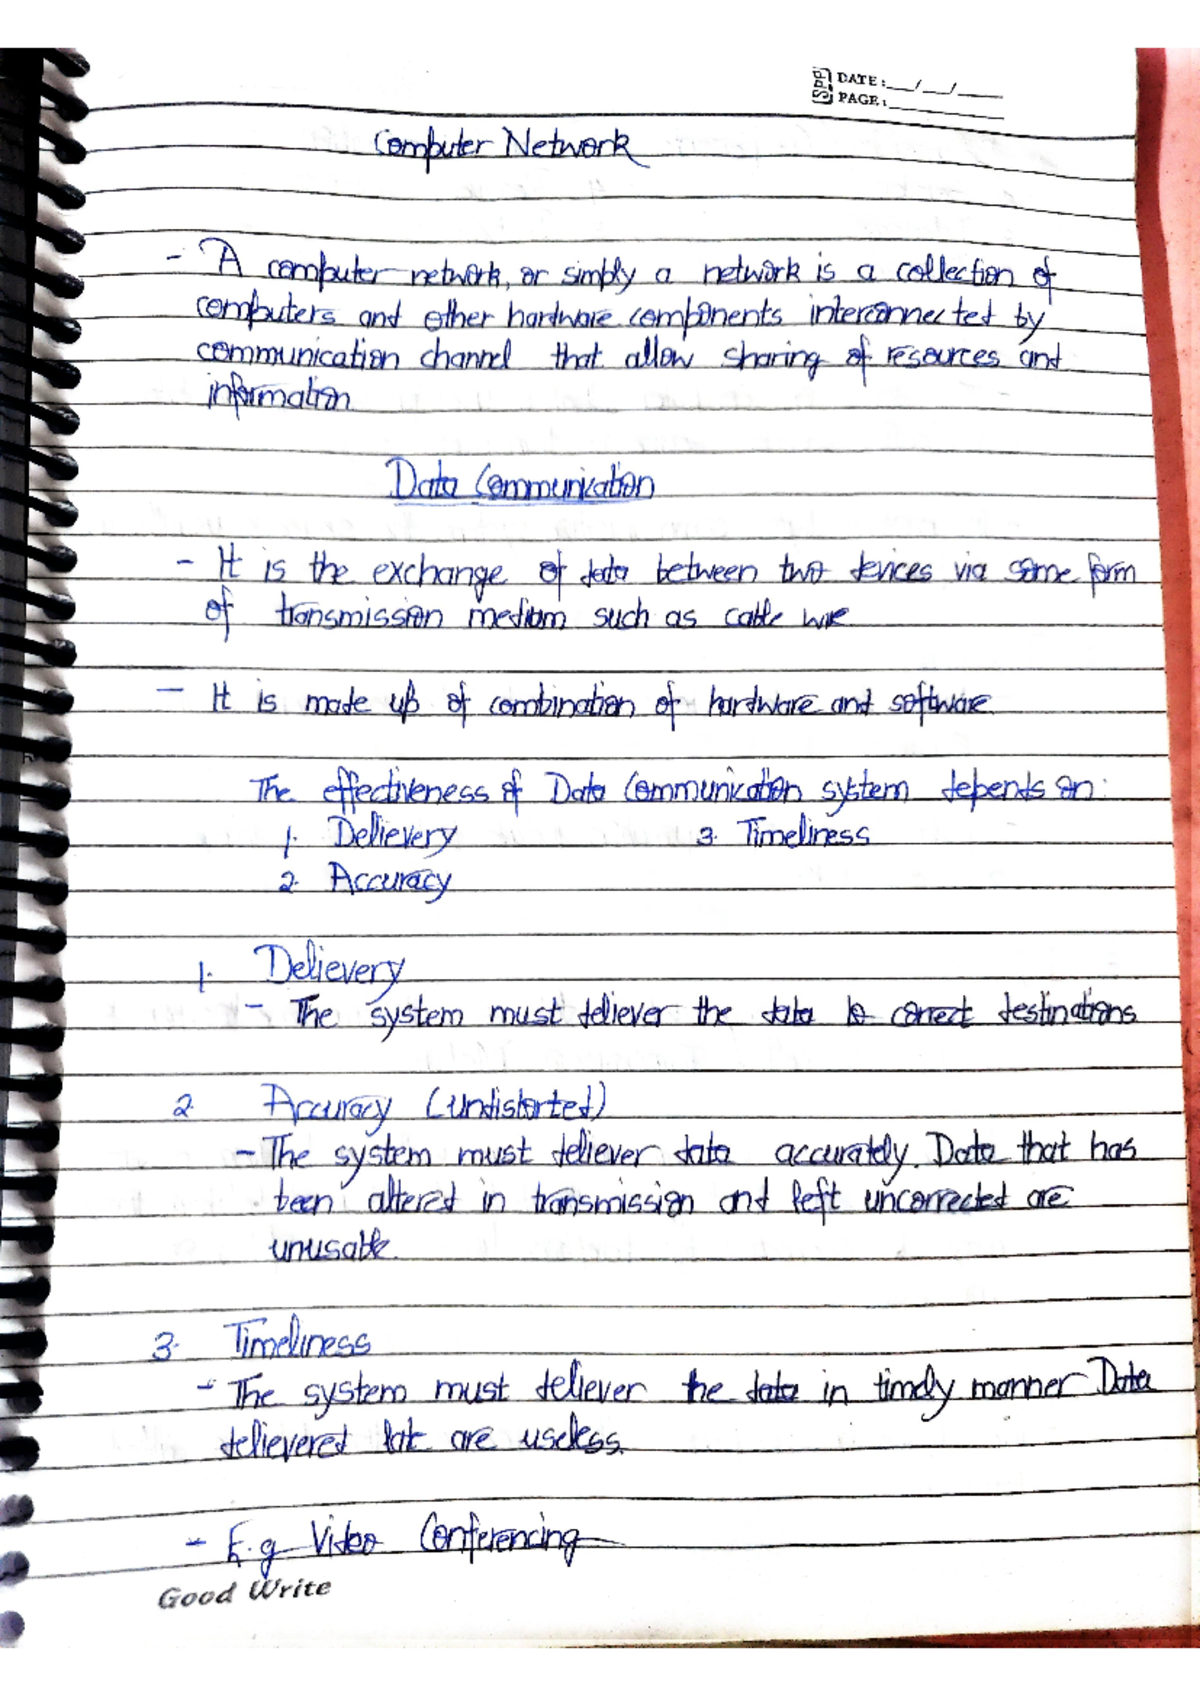 DATE:__/__/____
PAGE:
Computer Network
- A computer network, or simply a network is a collection of
computers and other hardware components interconnected by
communication channel that allow sharing of resources and
information
Data Communication
- It is the exchange of data between two devices via some form
of transmission medium such as cable wire
- It is made up of combination of hardware and software
The effectiveness of Data Communication system depends on:
1. Delievery 3. Timeliness
2. Accuracy
1. Delievery
- The system must deliever the data to correct destinations
2. Accuracy (undistorted)
- The system must deliever data accurately. Data that has
been altered in transmission and left uncorrected are
unusable.
3. Timeliness
- The system must deliever the data in timely manner Data
delievered late are useless.
- E.g Video Conferencing
Good Write